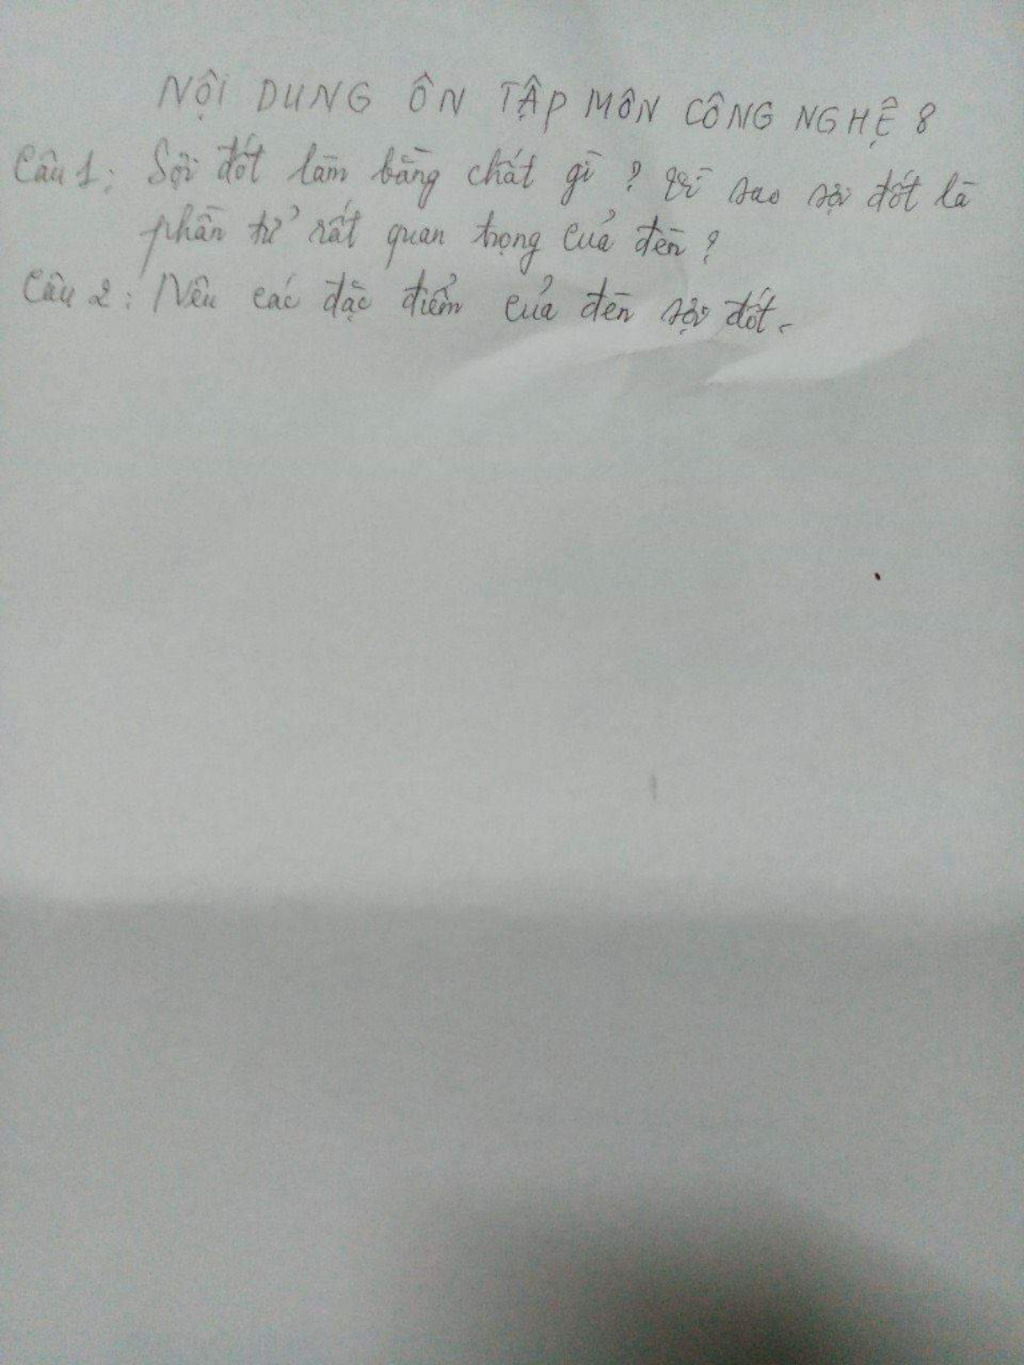 NỘI DUNG ÔN TẬP MÔN CÔNG NGHỆ 8
Câu 1: Sợi đốt làm bằng chất gì? Vì sao sợi đốt là
phần tử rất quan trọng của đèn?
Câu 2: Nêu các đặc điểm của đèn sợi đốt.